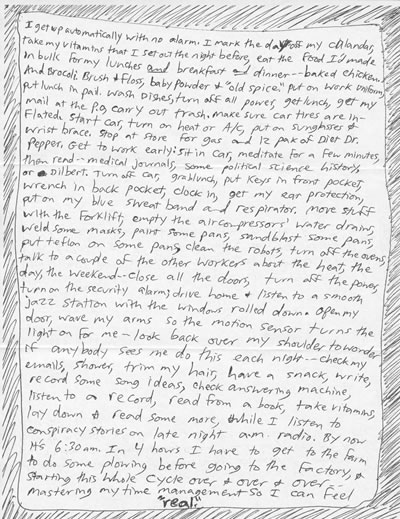 I get up automatically with no alarm. I mark the day off my calandar,
take my vitamins that I set out the night before, eat the food I'd made
in bulk for my lunches and breakfast and dinner -- baked chicken
And Brocoli. Brush & floss, baby powder & "old spice." put on work uniform,
put lunch in pail. Wash dishes, turn off all power, get lunch, get my
mail at the P.O., carry out trash. make sure car tires are in-
flated. Start car, turn on heat or A/c, put on sunglasses &
wrist brace. Stop at store for gas and 12 pak of Diet Dr.
Pepper. Get to work early: sit in car, meditate for a few minutes,
then read -- medical journals, some political science history
or Dilbert. Turn off car, grab lunch, put keys in front pocket,
wrench in back pocket, clock in, get my ear protection,
put on my blue sweat band and respirator, move stuff
with the forklift, empty the air compressors' water drains,
weld some masks, paint some pans, sandblast some pans,
put teflon on some pans, clean the robots, turn off the ovens,
talk to a couple of the other workers about the heat, the
day, the weekend - close all the doors, turn off the power,
turn on the security alarm; drive home & listen to a smooth
jazz station with the windows rolled down. Open my
door, wave my arms so the motion sensor turns the
light on for me - look back over my shoulder to wonder
if anybody sees me do this each night -- check my
emails, shower, trim my hair, have a snack, write,
record some song ideas, check answering machine,
listen to a record, read from a book, take vitamins,
lay down & read some more, while I listen to
conspiracy stories on late night a.m. radio. By now
it's 6:30 am. In 4 hours I have to get to the farm
to do some plowing before going to the factory, &
starting this whole cycle over & over & over -
mastering my time management so I can feel
"real."